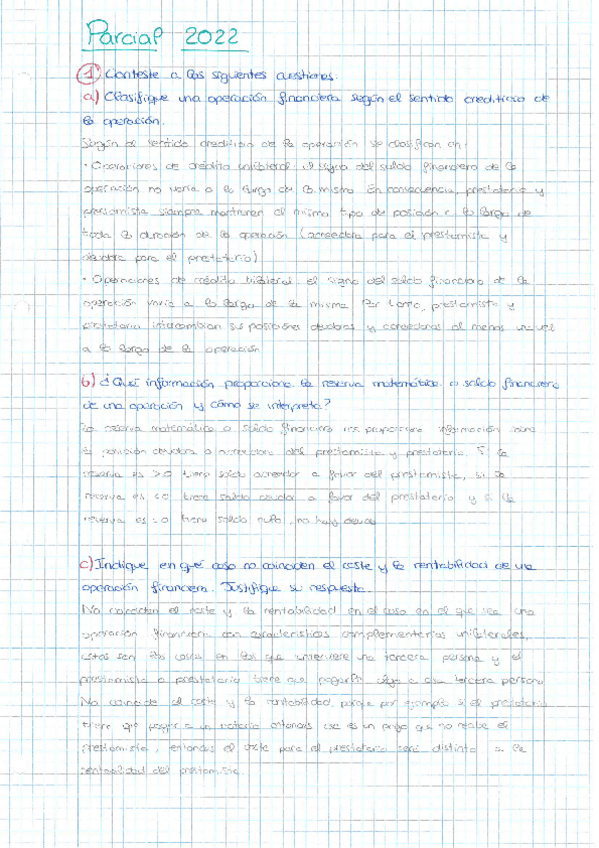 Parcial 2022
1 Conteste a las siguientes cuestiones:
a) Clasifique una operación financiera según el sentido crediticio de
la operación.
Según el sentido crediticio de la operación se clasifican en:
• Operaciones de crédito unilateral: el signo del saldo financiero de la
operación no varía a lo largo de la misma. En consecuencia, prestatario y
prestamista siempre mantienen el mismo tipo de posición a lo largo de
toda la duración de la operación (acreedora para el prestamista y
deudora para el prestatario)
• Operaciones de crédito bilateral: el signo del saldo financiero de la
operación varía a lo largo de la misma. Por tanto, prestamista y
prestatario intercambian sus posiciones deudoras y acreedoras al menos una vez
a lo largo de la operación
b) ¿Qué información proporciona la reserva matemática o saldo financiero
de una operación y cómo se interpreta?
La reserva matemática o saldo financiero nos proporciona información sobre
la posición deudora o acreedora del prestamista y prestatario. Si la
reserva es >0 tiene saldo acreedor a favor del prestamista, si la
reserva es <0 tiene saldo deudor a favor del prestatario y si la
reserva es =0 tiene saldo nulo, no hay deuda
c) Indique en qué caso no coinciden el coste y la rentabilidad de una
operación financiera. Justifique su respuesta.
No coinciden el coste y la rentabilidad en el caso en el que sea una
operación financiera con características complementarias unilaterales,
estos son los casos en los que interviene una tercera persona y el
prestamista o prestatario tiene que pagarle algo a esa tercera persona
No coincide el coste y la rentabilidad, porque por ejemplo si el prestatario
tiene que pagar a un notario entonces ese es un pago que no recibe el
prestamista, entonces el coste para el prestatario será distinto a la
rentabilidad del prestamista.